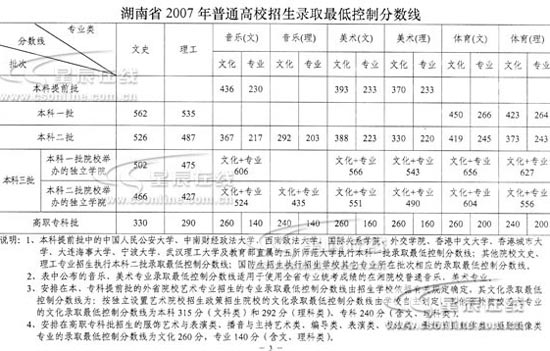 湖南省2007年普通高校招生录取最低控制分数线
专业类 分数线 批次 文史 理工 音乐(文) 音乐(理) 美术(文) 美术(理) 体育(文) 体育(理)
文化 专业 文化 专业 文化 专业 文化 专业 文化 专业 文化 专业
本科提前批 436 230 393 233 370 233
本科一批 562 535 450 266 423 264
本科二批 526 487 367 217 292 203 388 223 330 220 419 245 373 243
本科三批
本科一批院校举办的独立学院 502 475 文化+专业 606 文化+专业 566 文化+专业 543 文化+专业 656 文化+专业 627
本科二批院校举办的独立学院 466 427 文化+专业 524 文化+专业 435 文化+专业 551 文化+专业 490 文化+专业 604 文化+专业 556
高职专科批 330 290 260 140 240 140 260 160 240 160 260 200 240 200
说明：1、本科提前批中的中国人民公安大学、中南财经政法大学、西南政法大学、国际关系学院、外交学院、香港中文大学、香港城市大
学、大连海事大学、宁波大学、武汉理工大学及教育部直属的五所师范大学执行本科一批录取最低控制分数线；其他院校文史、
理工专业招生执行本科二批录取最低控制分数线；国防生招生执行招生学校其它专业所在批次相应的录取最低控制分数线。
2、表中公布的音乐、美术专业录取最低控制分数线适用于使用全省专业统考成绩的在湘院校普通音乐、美术专业。
3、安排在本、专科提前批的外省院校艺术专业招生的专业录取最低控制分数线由招生学校依据有关规定确定，其文化录取最低控
制分数线为：按独立设置艺术院校招生政策招生院校的文化录取最低控制分数线由学校自主划定，
的文化录取最低控制分数线为本科315分（文科）和292分（理科）、专科240分（含文、理科）。
4、安排在高职专科批招生的服饰艺术与表演类、播音与主持艺术类、编导类、表演类、
专业的录取最低控制分数线为文化260分，专业140分（含文、理科）。
- 3 -
星辰在线
www.csonline.com.cn